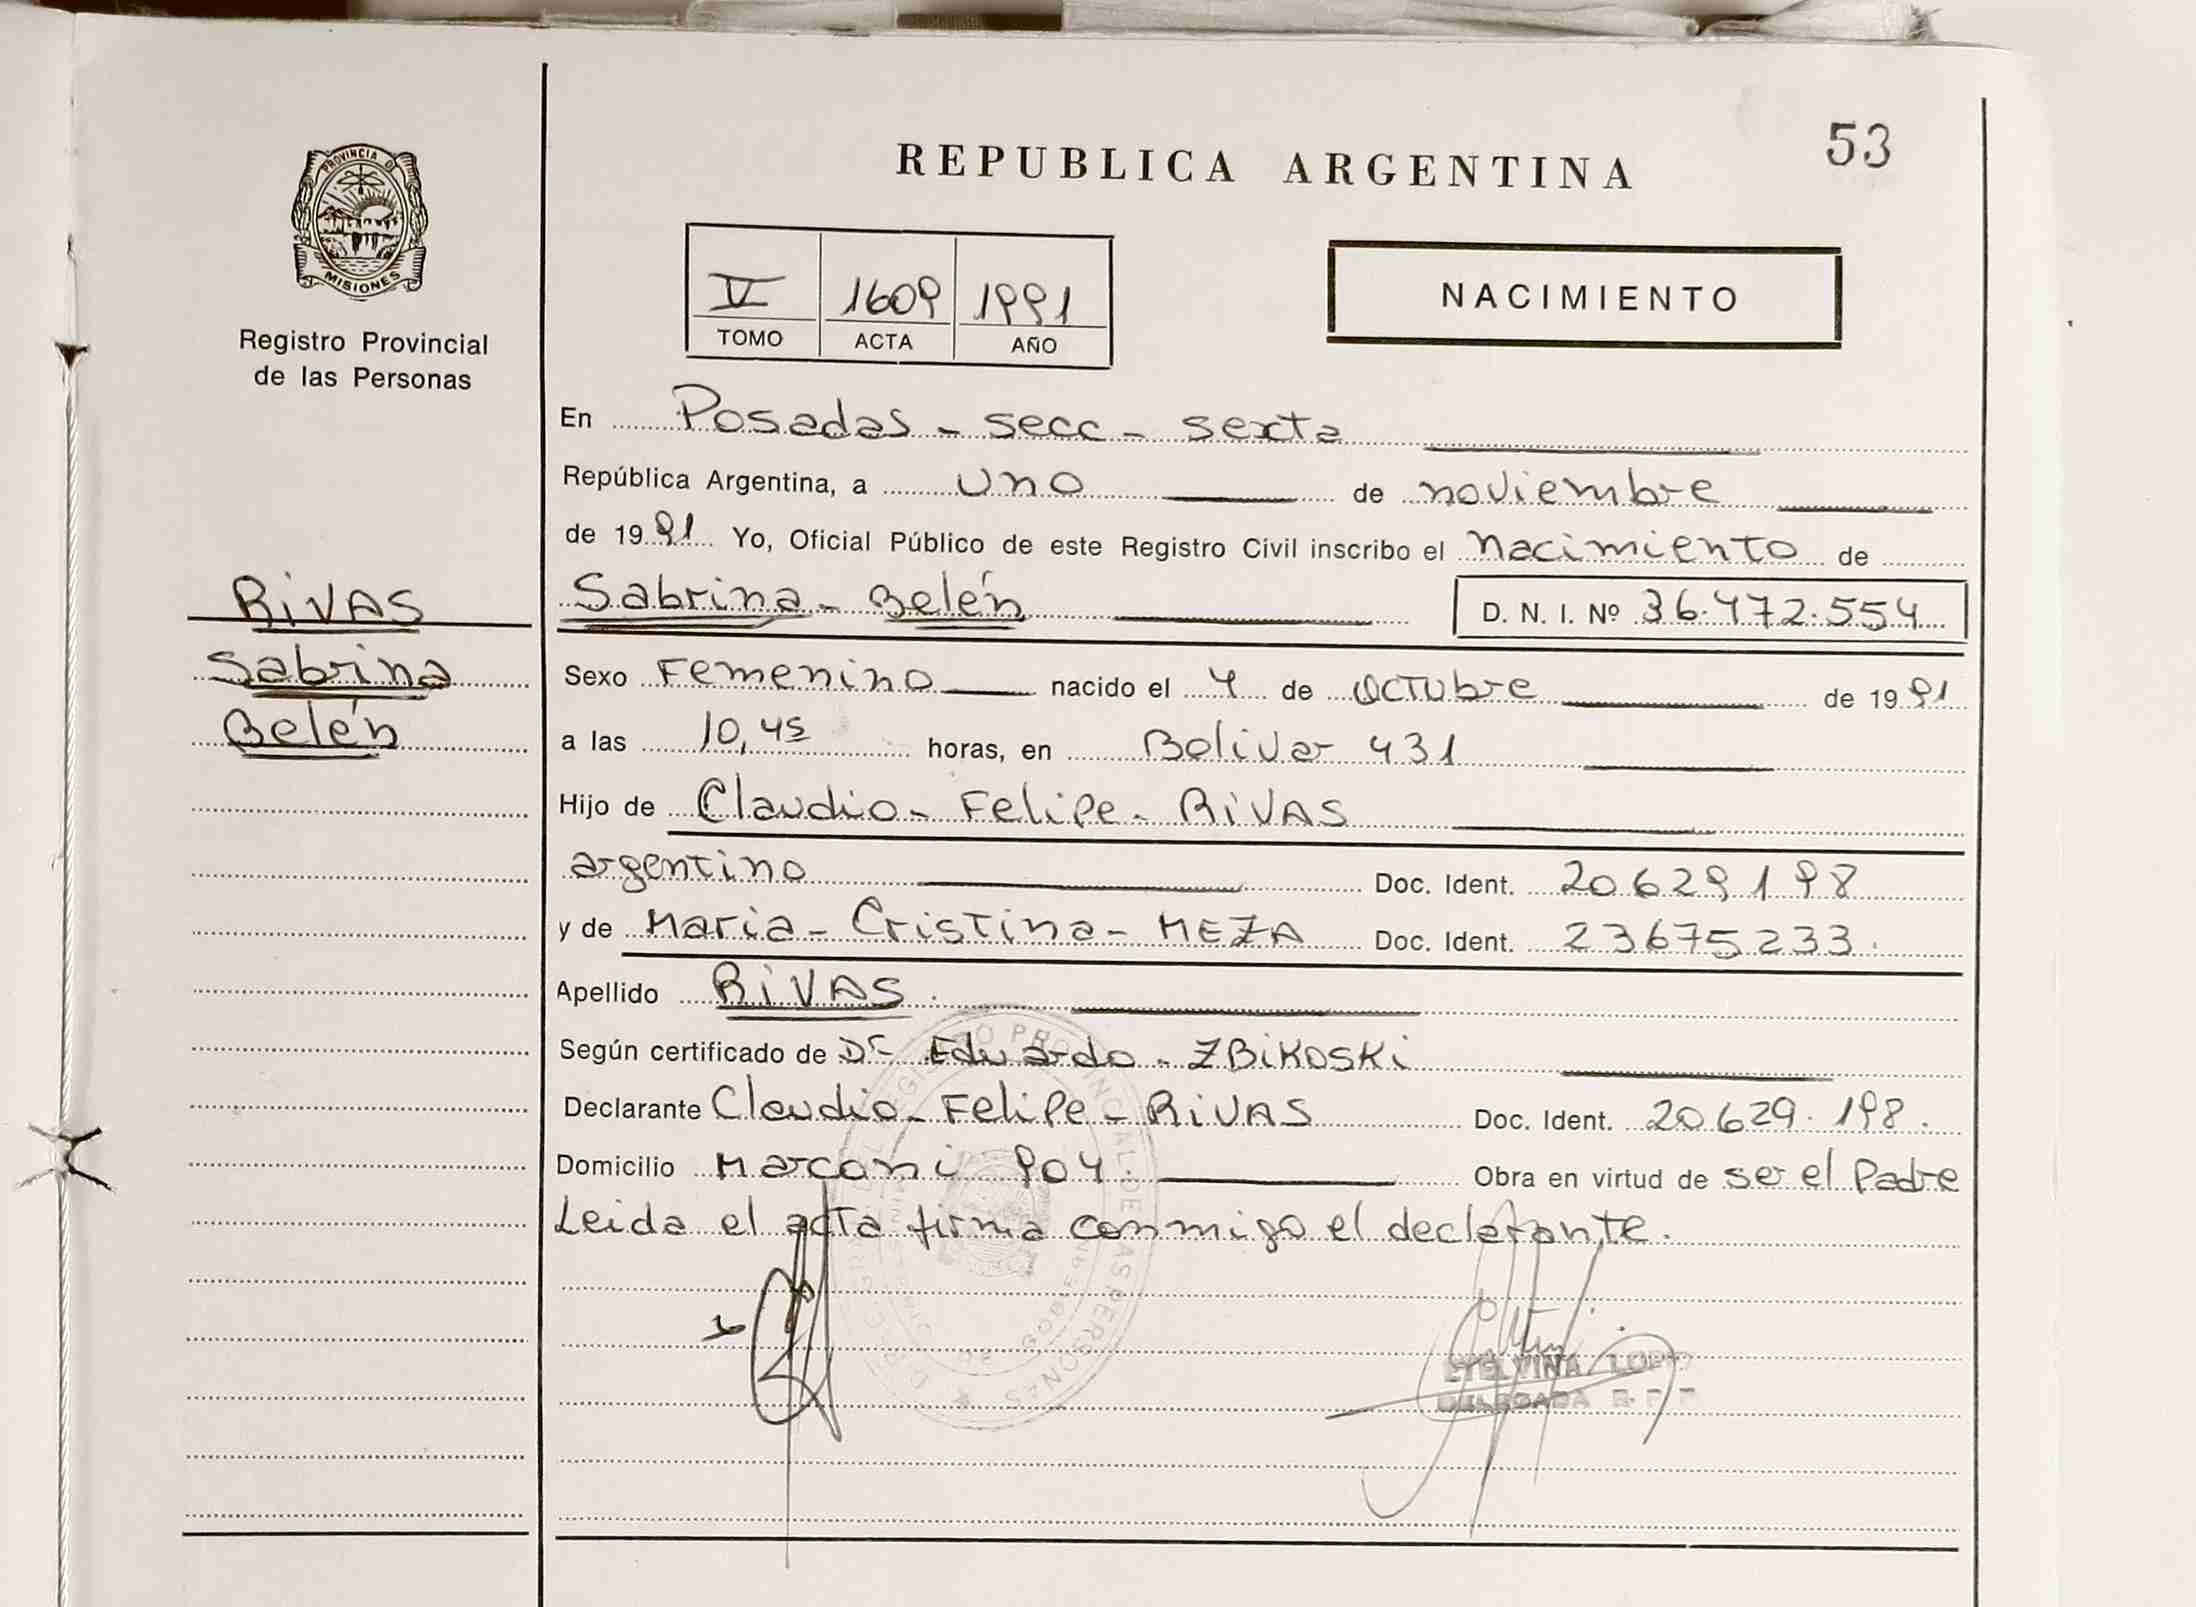 53
REPUBLICA ARGENTINA
PROVINCIA D
MISIONES
Registro Provincial
de las Personas
V 1609 1991
TOMO ACTA AÑO
NACIMIENTO
En Posadas - secc - sexta
República Argentina, a uno de noviembre
de 1991 Yo, Oficial Público de este Registro Civil inscribo el nacimiento de
RIVAS
Sabrina
Belén
Sabrina - Belén D. N. I. Nº 36.472.554
Sexo Femenino nacido el 4 de octubre de 1991
a las 10,45 horas, en Bolivar 431
Hijo de Claudio - Felipe - RIVAS
argentino Doc. Ident. 20629198
y de Maria - Cristina - MEZA Doc. Ident. 23675233.
Apellido RIVAS.
Según certificado de Dr Eduardo - ZBIKOSKI
Declarante Claudio - Felipe - RIVAS Doc. Ident. 20629.198.
Domicilio Marconi 904. Obra en virtud de ser el Padre
Leida el acta firma conmigo el declarante.
REGISTRO PROVINCIAL DE LAS PERSONAS
ETELVINA
DELEGADA